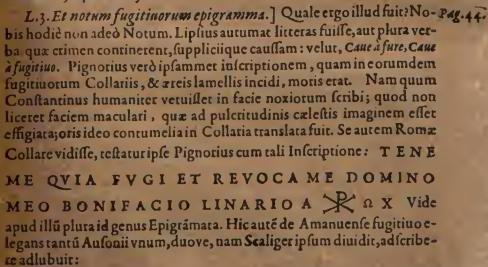 L.3. Et notum fugitiuorum epigramma.] Quale ergo illud fuit? No- Pag. 44.
bis hodiè non adeò Notum. Lipſius autumat litteras fuiſſe, aut plura ver-
ba quæ crimen continerent, ſuppliciique cauſſam: velut, Caue à fure, Caue
à fugitiuo. Pignorius verò ipſammet inſcriptionem, quam in eorumdem
fugitiuorum Collariis, & æreis lamellis incidi, moris erat. Nam quum
Conſtantinus humaniter vetuiſſet in facie noxiorum ſcribi; quod non
liceret faciem maculari, quæ ad pulcritudinis cæleſtis imaginem eſſet
effigiata; oris ideo contumelia in Collaria translata fuit. Se autem Romæ
Collare vidiſſe, teſtatur ipſe Pignorius cum tali Inſcriptione: TENE
ME QVIA FVGI ET REVOCA ME DOMINO
MEO BONIFACIO LINARIO A ☧ Ω X Vide
apud illū plura id genus Epigrāmata. Hic autē de Amanuenſe fugitiuo e-
legans tantū Auſonii vnum, duove, nam Scaliger ipſum diuidit, adſcribe-
re adlubuit: